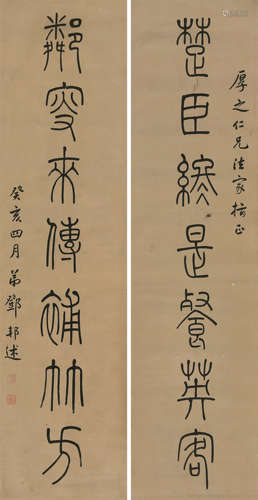 厚之仁兄法家指正
楚臣總是餐英客
鄰叟來傳補竹方
癸亥四月弟鄧邦述